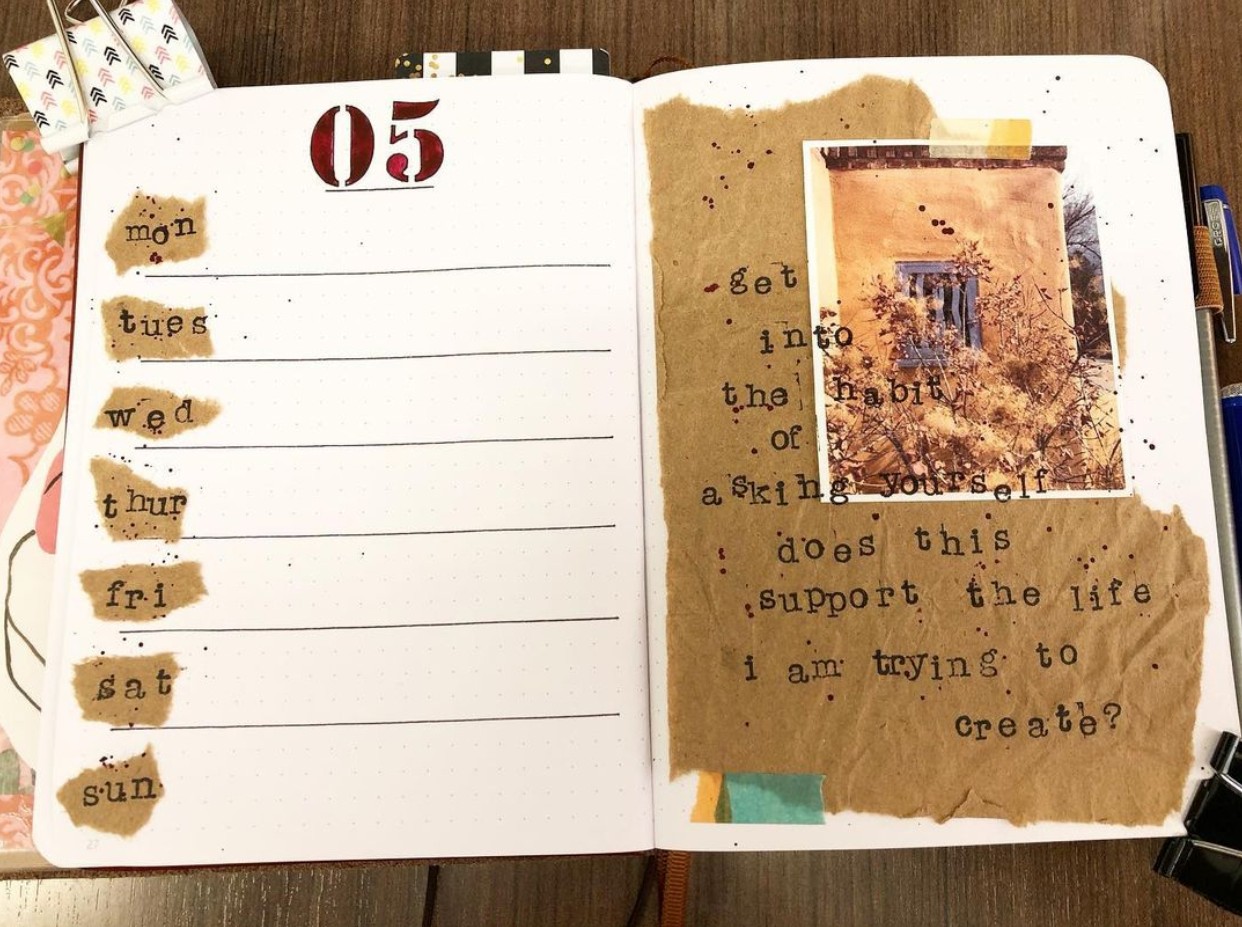 05
mon
tues
wed
thur
fri
sat
sun
27
get
into
the habit
of
asking yourself
does this
support the life
i am trying to
create?